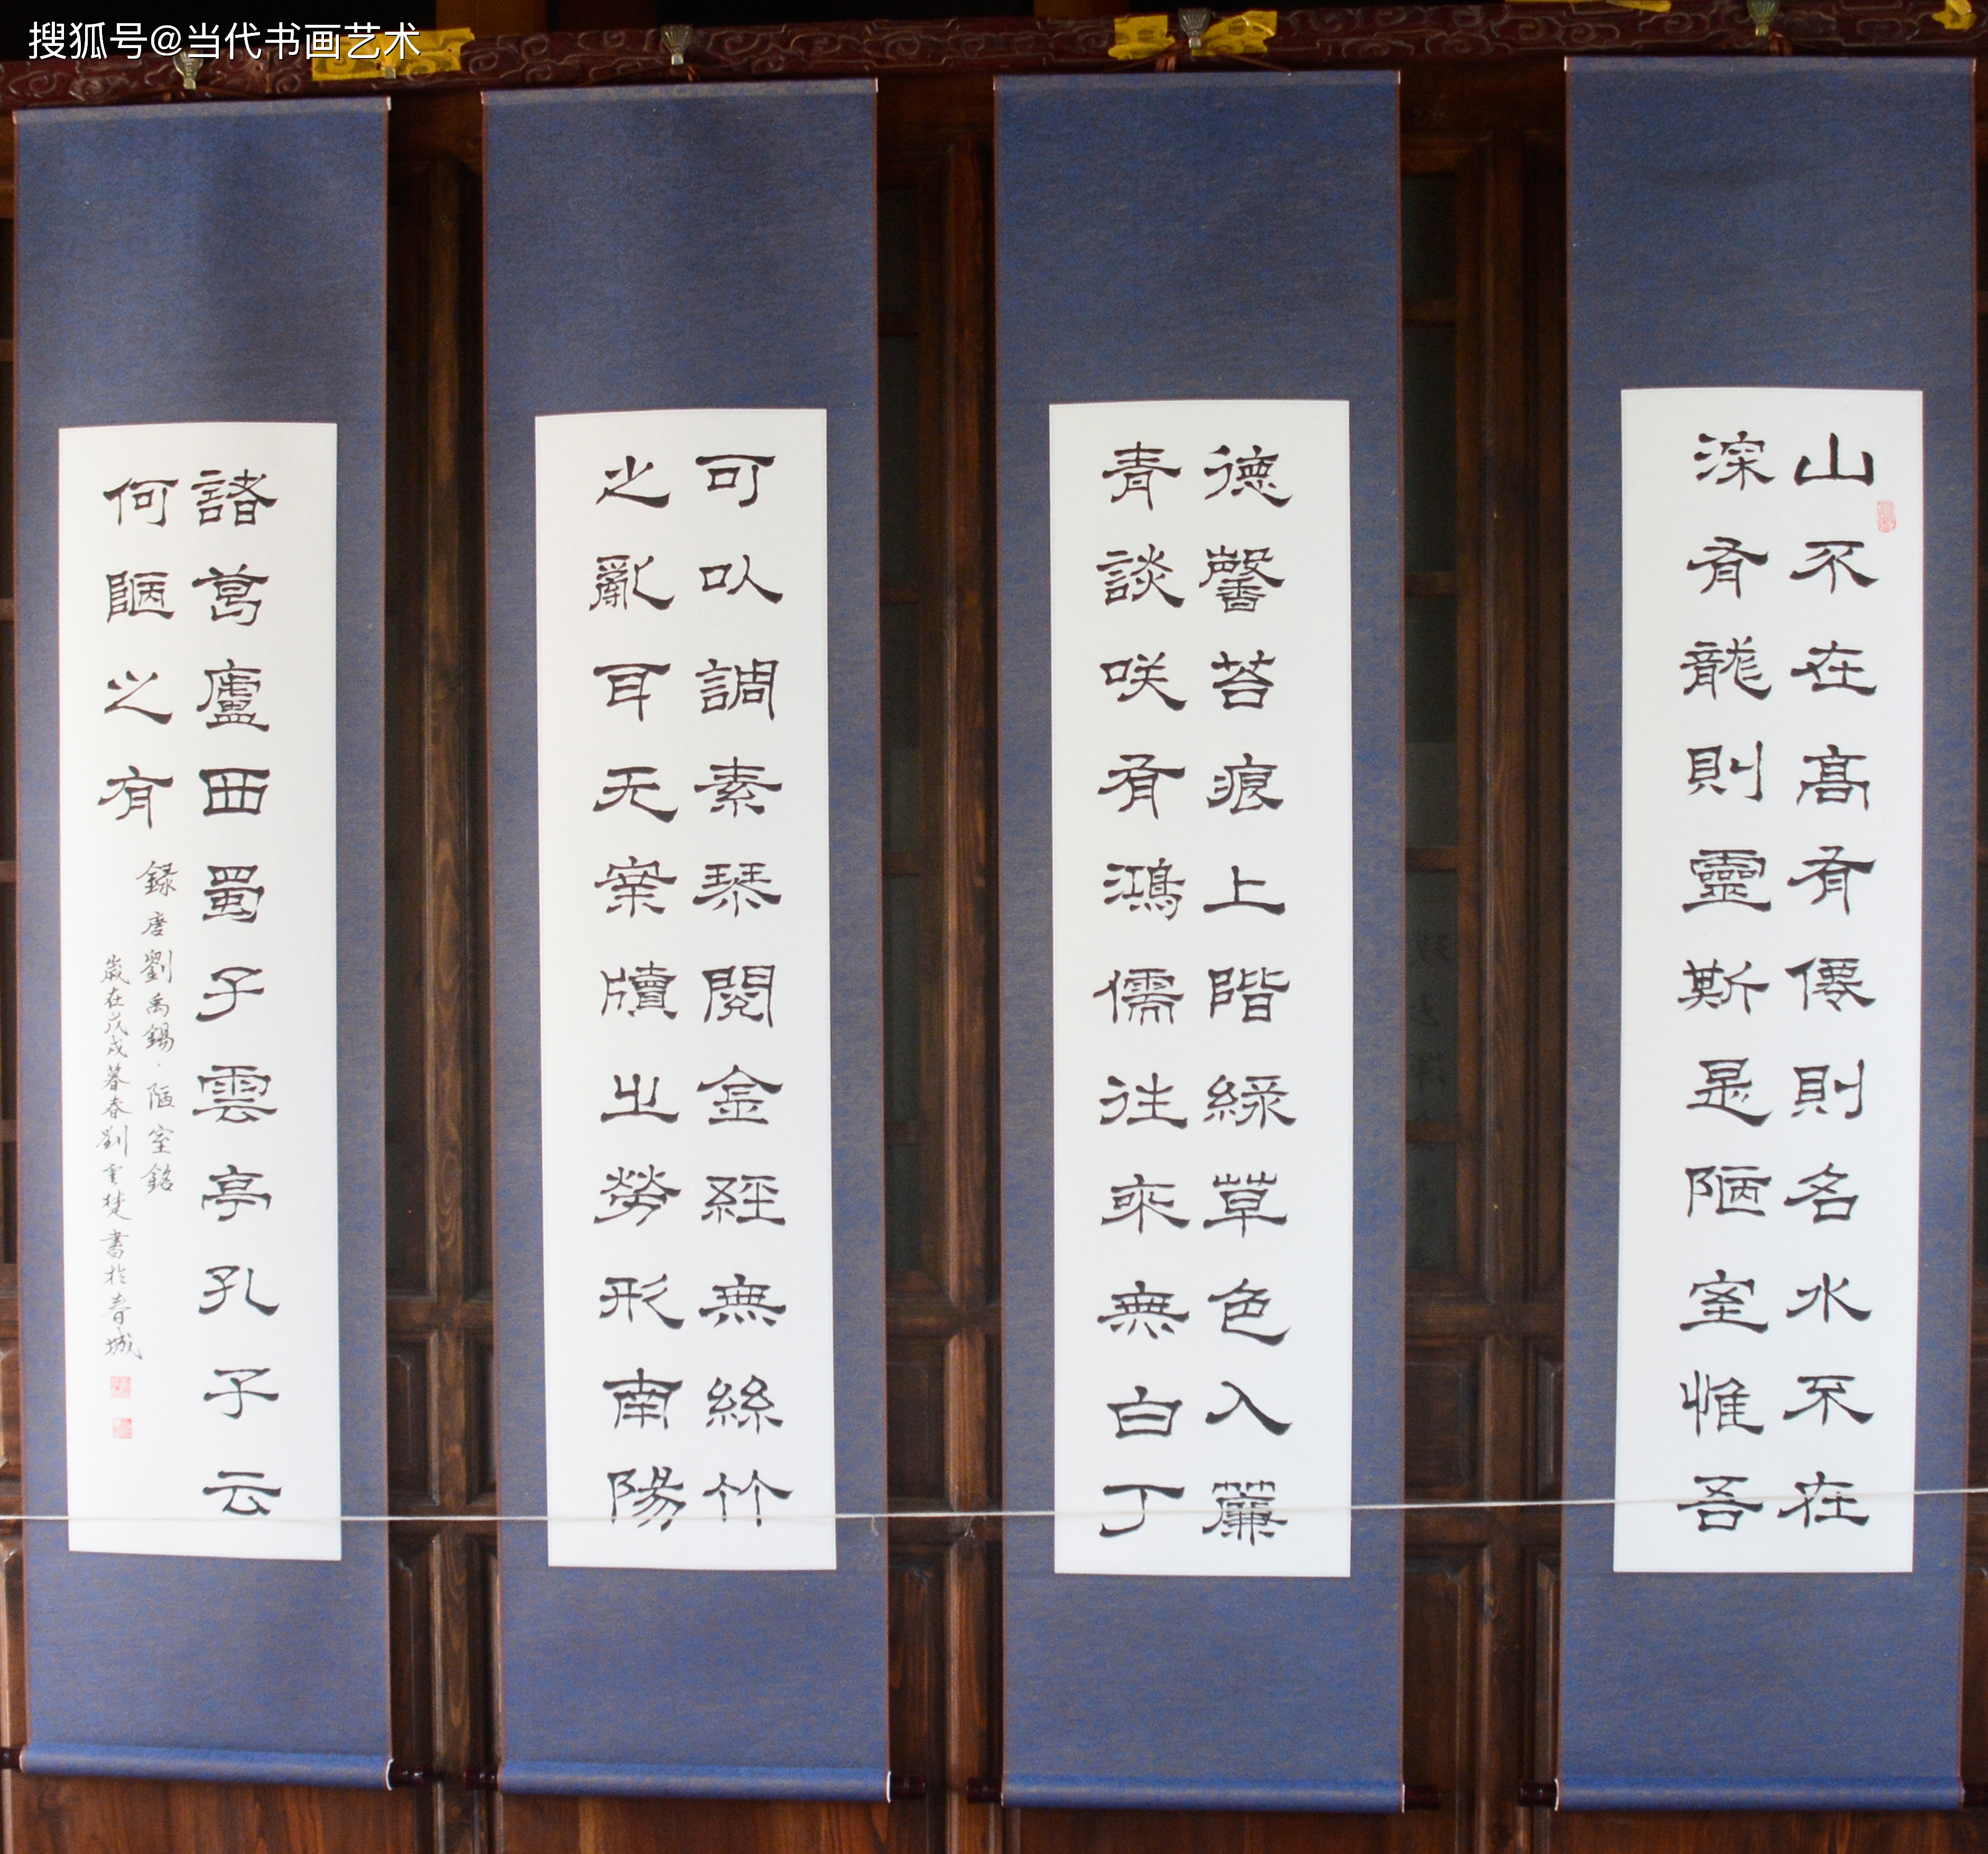 搜狐号@当代书画艺术
山不在高有僊則名水不在
深有龍則靈斯是陋室惟吾
德馨苔痕上階緑草色入簾
青談咲有鴻儒往来無白丁
可以調素琴閱金經無絲竹
之亂耳无案牘之勞形南陽
諸葛廬西蜀子雲亭孔子云
何陋之有
録唐劉禹錫·陋室銘
歲在戊戌暮春劉雲楚書於春城